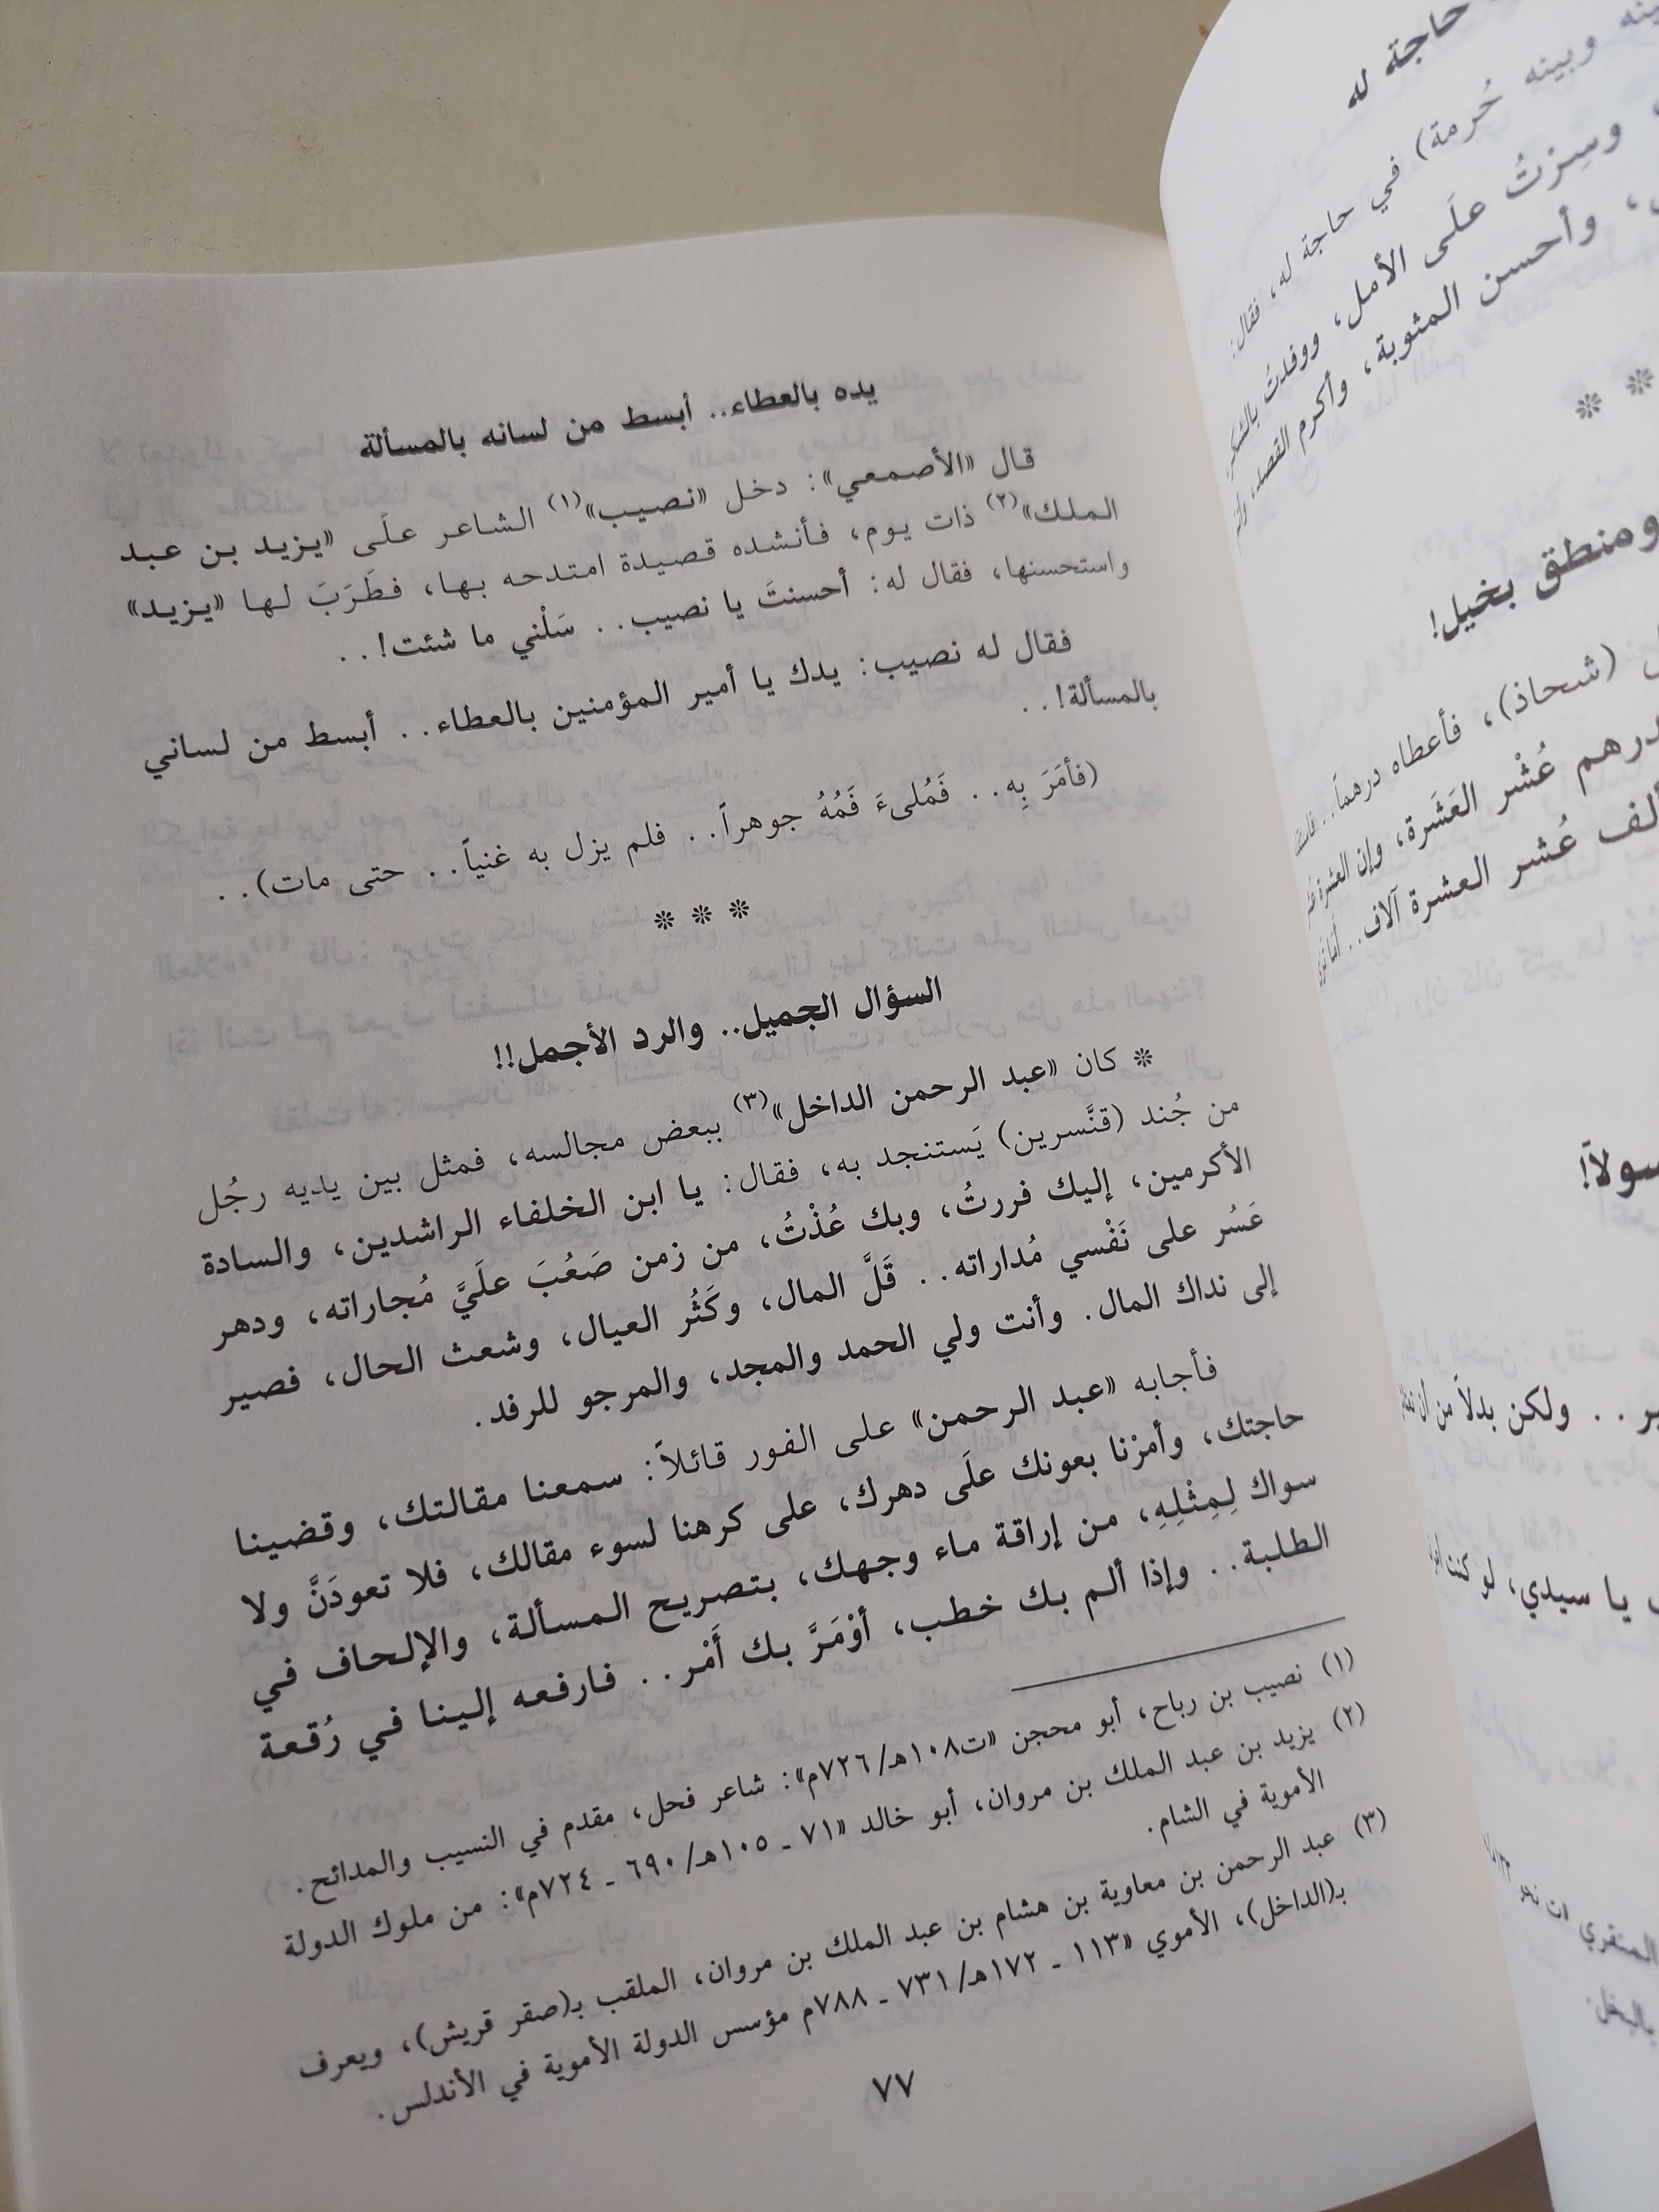 يده بالعطاء.. أبسط من لسانه بالمسألة
قال «الأصمعي»: دخل «نصيب»(١) الشاعر علَى «يزيد بن عبد
الملك»(٢) ذات يوم، فأنشده قصيدة امتدحه بها، فطَرَبَ لها «يزيد»
واستحسنها، فقال له: أحسنتَ يا نصيب.. سَلْني ما شئت!..
فقال له نصيب: يدك يا أمير المؤمنين بالعطاء.. أبسط من لساني
بالمسألة!..
(فأمَرَ بِه.. فَمُلىءَ فَمُهُ جوهراً.. فلم يزل به غنياً.. حتى مات)..
❊ ❊ ❊
السؤال الجميل.. والرد الأجمل!!
❊ كان «عبد الرحمن الداخل»(٣) ببعض مجالسه، فمثل بين يديه رجُل
من جُند (قنَّسرين) يَستنجد به، فقال: يا ابن الخلفاء الراشدين، والسادة
الأكرمين، إليك فررتُ، وبك عُذْتُ، من زمن صَعُبَ علَيَّ مُجاراته، ودهر
عَسُر على نَفْسي مُداراته.. قَلَّ المال، وكَثُر العيال، وشعث الحال، فصير
إلى نداك المال. وأنت ولي الحمد والمجد، والمرجو للرفد.
فأجابه «عبد الرحمن» على الفور قائلاً: سمعنا مقالتك، وقضينا
حاجتك، وأمرْنا بعونك علَى دهرك، على كرهنا لسوء مقالك، فلا تعودَنَّ ولا
سواك لِمِثْلِهِ، من إراقة ماء وجهك، بتصريح المسألة، والإلحاف في
الطلبة.. وإذا ألم بك خطب، أوْمَرَّ بك أَمْر.. فارفعه إلينا في رُقعة
(١) نصيب بن رباح، أبو محجن «ت١٠٨هـ/٧٢٦م»: شاعر فحل، مقدم في النسيب والمدائح.
(٢) يزيد بن عبد الملك بن مروان، أبو خالد «٧١ ـ ١٠٥هـ/٦٩٠ ـ ٧٢٤م»: من ملوك الدولة
الأموية في الشام.
(٣) عبد الرحمن بن معاوية بن هشام بن عبد الملك بن مروان، الملقب بـ(صقر قريش)، ويعرف
بـ(الداخل)، الأموي «١١٣ ـ ١٧٢هـ/٧٣١ ـ ٧٨٨م مؤسس الدولة الأموية في الأندلس.
٧٧
حاجة له
وبينه حُرمة) في حاجة له، فقال:
وسِرْتُ علَى الأمل، ووفدتُ بالشكر
وأحسن المثوبة، وأكرم القصد،
❊ ❊
ومنطق بخيل!
(شحاذ)، فأعطاه درهماً..
درهم عُشْر العَشَرة، وإن العشرة
عُشر العشرة آلاف..
ولكن بدلاً من أن
يا سيدي، لو كنت
المنقري